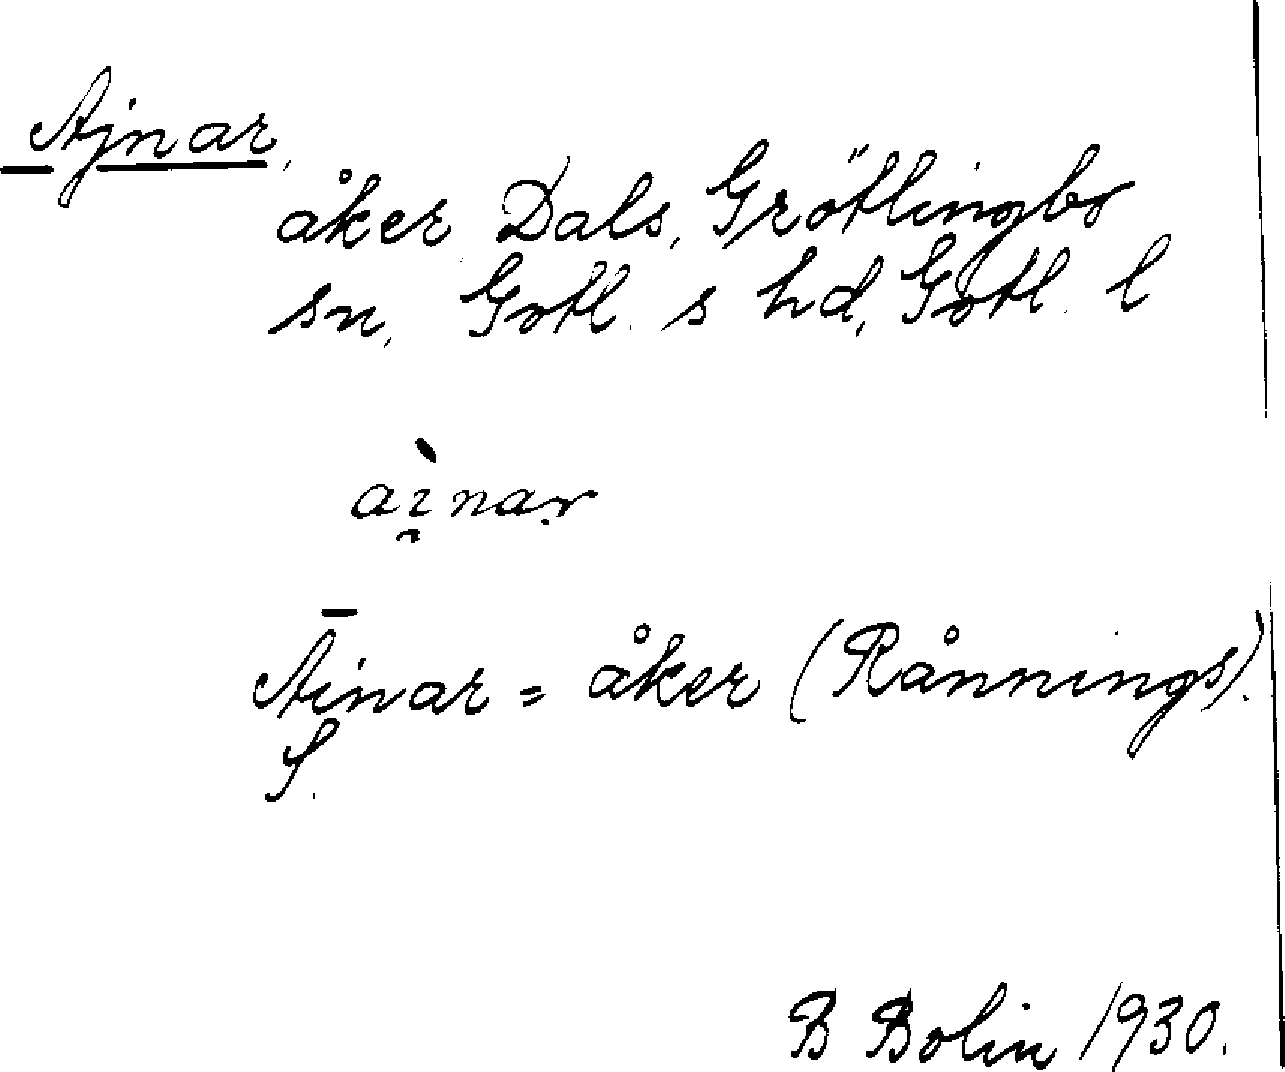 Ajnar,
åker Dals, Grötlingbo
sn, Gotl. s hd, Gotl. l
ài̯nar
Āinar = åker (Rånnings).
S.
B Bolin 1930.